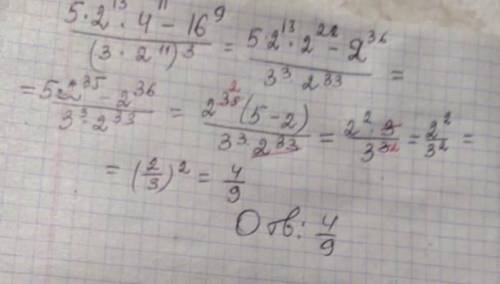 (5·2¹³·4¹¹ − 16⁹)/(3·2¹¹)³ = (5·2¹³·2²² − 2³⁶)/(3³·2³³) =
= (5·2³⁵ − 2³⁶)/(3³·2³³) = (2³⁵ ² (5−2))/(3³·2³³) = (2²·3)/(3³ ²) = 2²/3² =
= (2/3)² = 4/9
Отв: 4/9